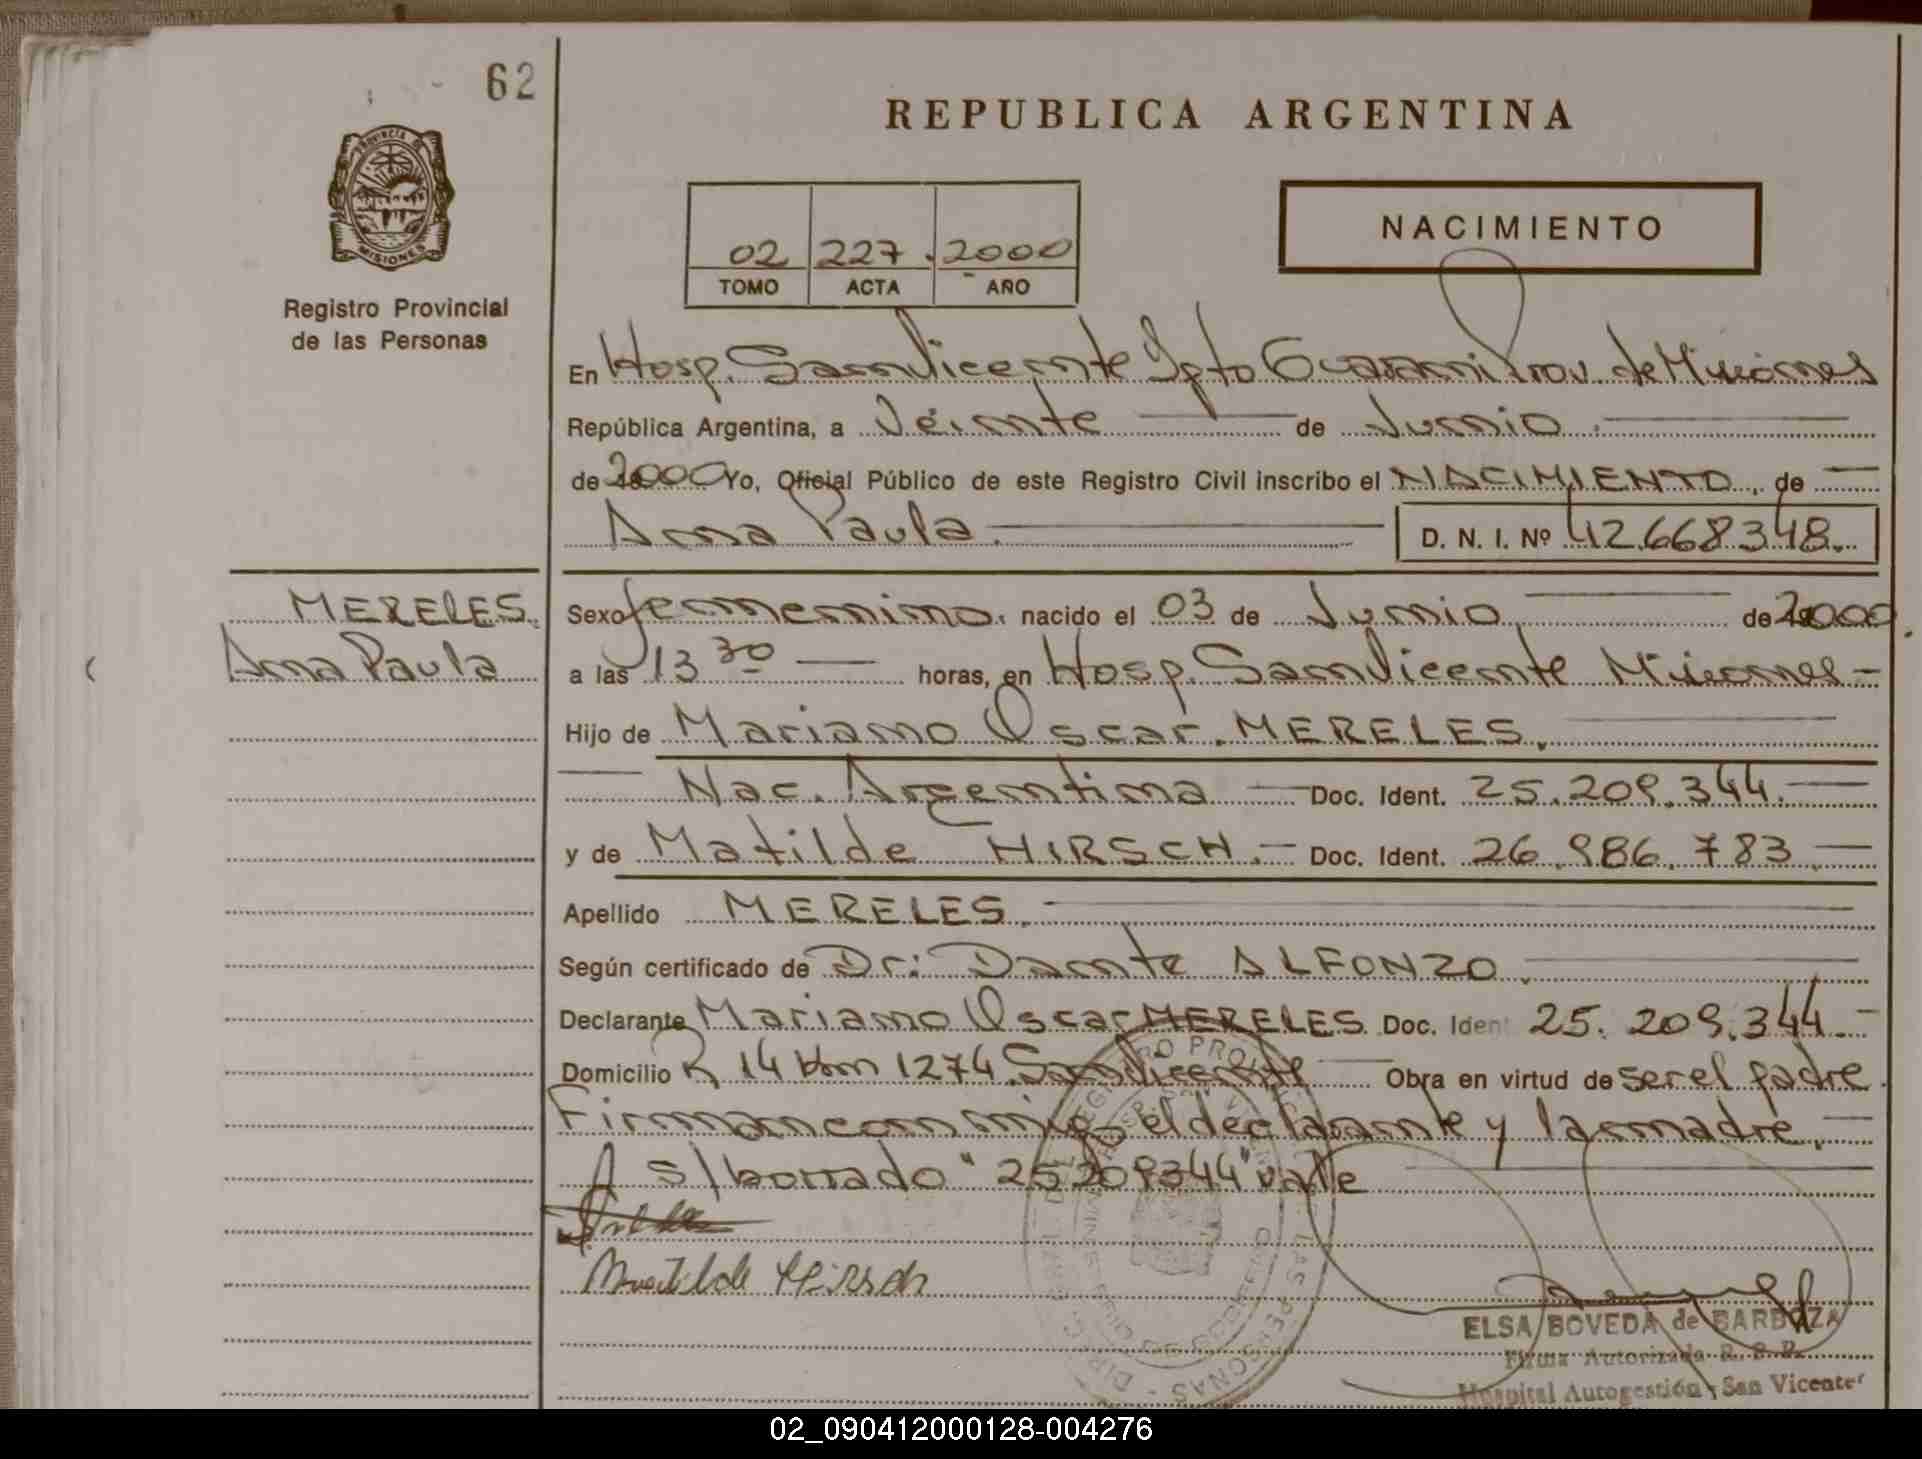 62
REPUBLICA ARGENTINA
PROVINCIA DE
MISIONES
Registro Provincial
de las Personas
02 227. 2000
TOMO ACTA AÑO
NACIMIENTO
En Hosp. San Vicente Dpto Guarani Prov. de Misiones
República Argentina, a Veinte de Junio.
de 2000 Yo, Oficial Público de este Registro Civil inscribo el NACIMIENTO, de
Anna Paula. D. N. I. Nº 42.668.348.
MERELES.
Anna Paula
Sexo femenino. nacido el 03 de Junio de 2000.
a las 13 30 horas, en Hosp. San Vicente Misiones-
Hijo de Mariano Oscar. MERELES.
Nac. Argentina Doc. Ident. 25.209.344.
y de Matilde HIRSCH.- Doc. Ident. 26.986.783.
Apellido MERELES.
Según certificado de Dr: Dante ALFONZO.
Declarante Mariano Oscar MERELES. Doc. Ident 25.209.344.-
Domicilio R 14 km 1274. San Vicente Obra en virtud de ser el padre.
Firman conmigo el declarante y la madre.
S/borrado "25209344" vale
Matilde Hirsch
ELSA BOVEDA de BARBOZA
Firma Autorizada R. P. P.
Hospital Autogestión - San Vicente
02_090412000128-004276